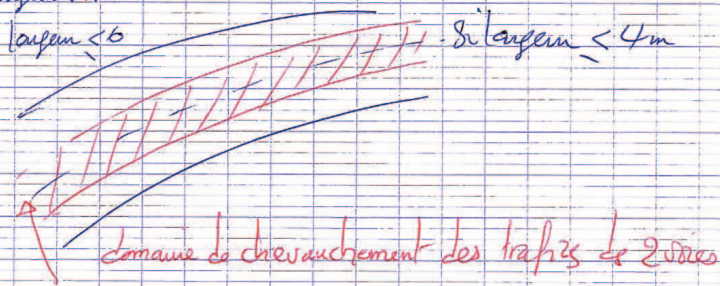 largeur < 6
- Si largeur < 4m
domaine de chevauchement des trafics de 2 voies